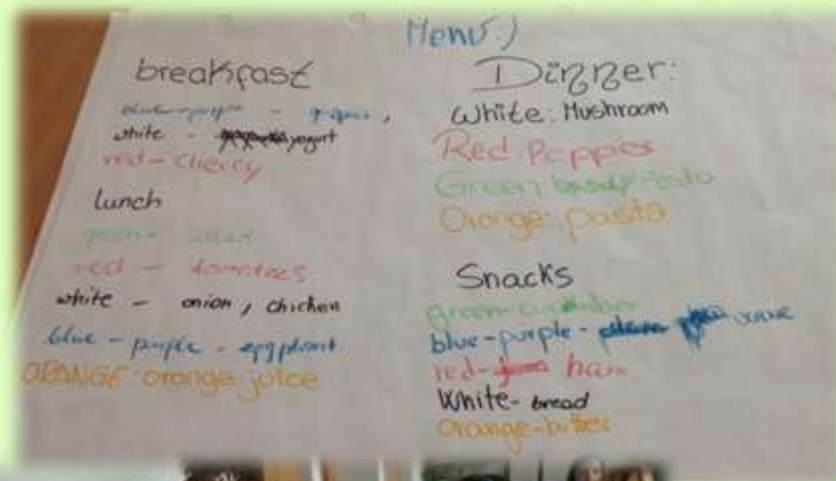 Menu:)
breakfast
blue-purple -
white - yogurt
red - cherry
lunch
green -
red - tomatoes
white - onion, chicken
blue - purple - eggplant
ORANGE orange juice
Dinner:
White: Mushroom
Red: Pepper
Green
Orange: pasta
Snacks
green-cucumber
blue-purple -
red - ham
White - bread
Orange-butter